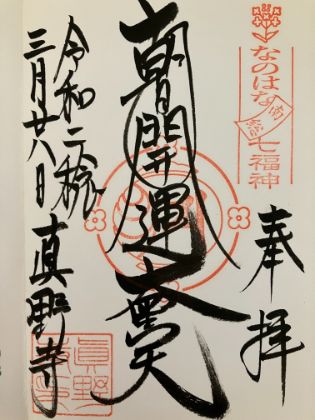 なのはな
七福神
奉拝
朝日開運大黒天
令和二稔
三月廿八日
真野寺
眞野